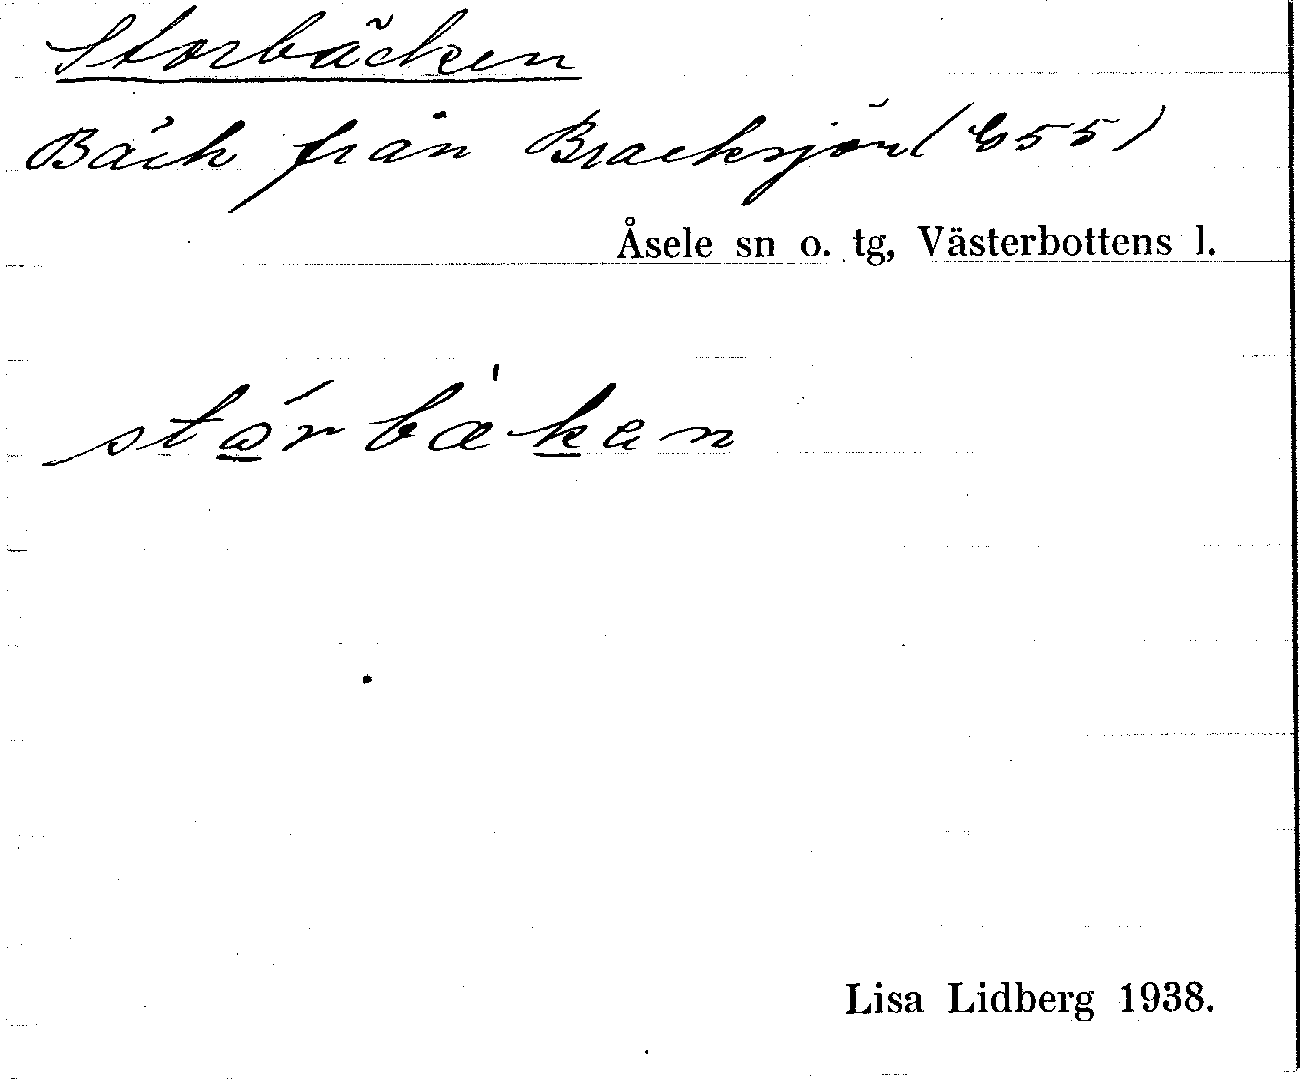 Storbäcken
Bäck från Bracksjön (C55)
Åsele sn o. tg, Västerbottens l.
Lisa Lidberg 1938.